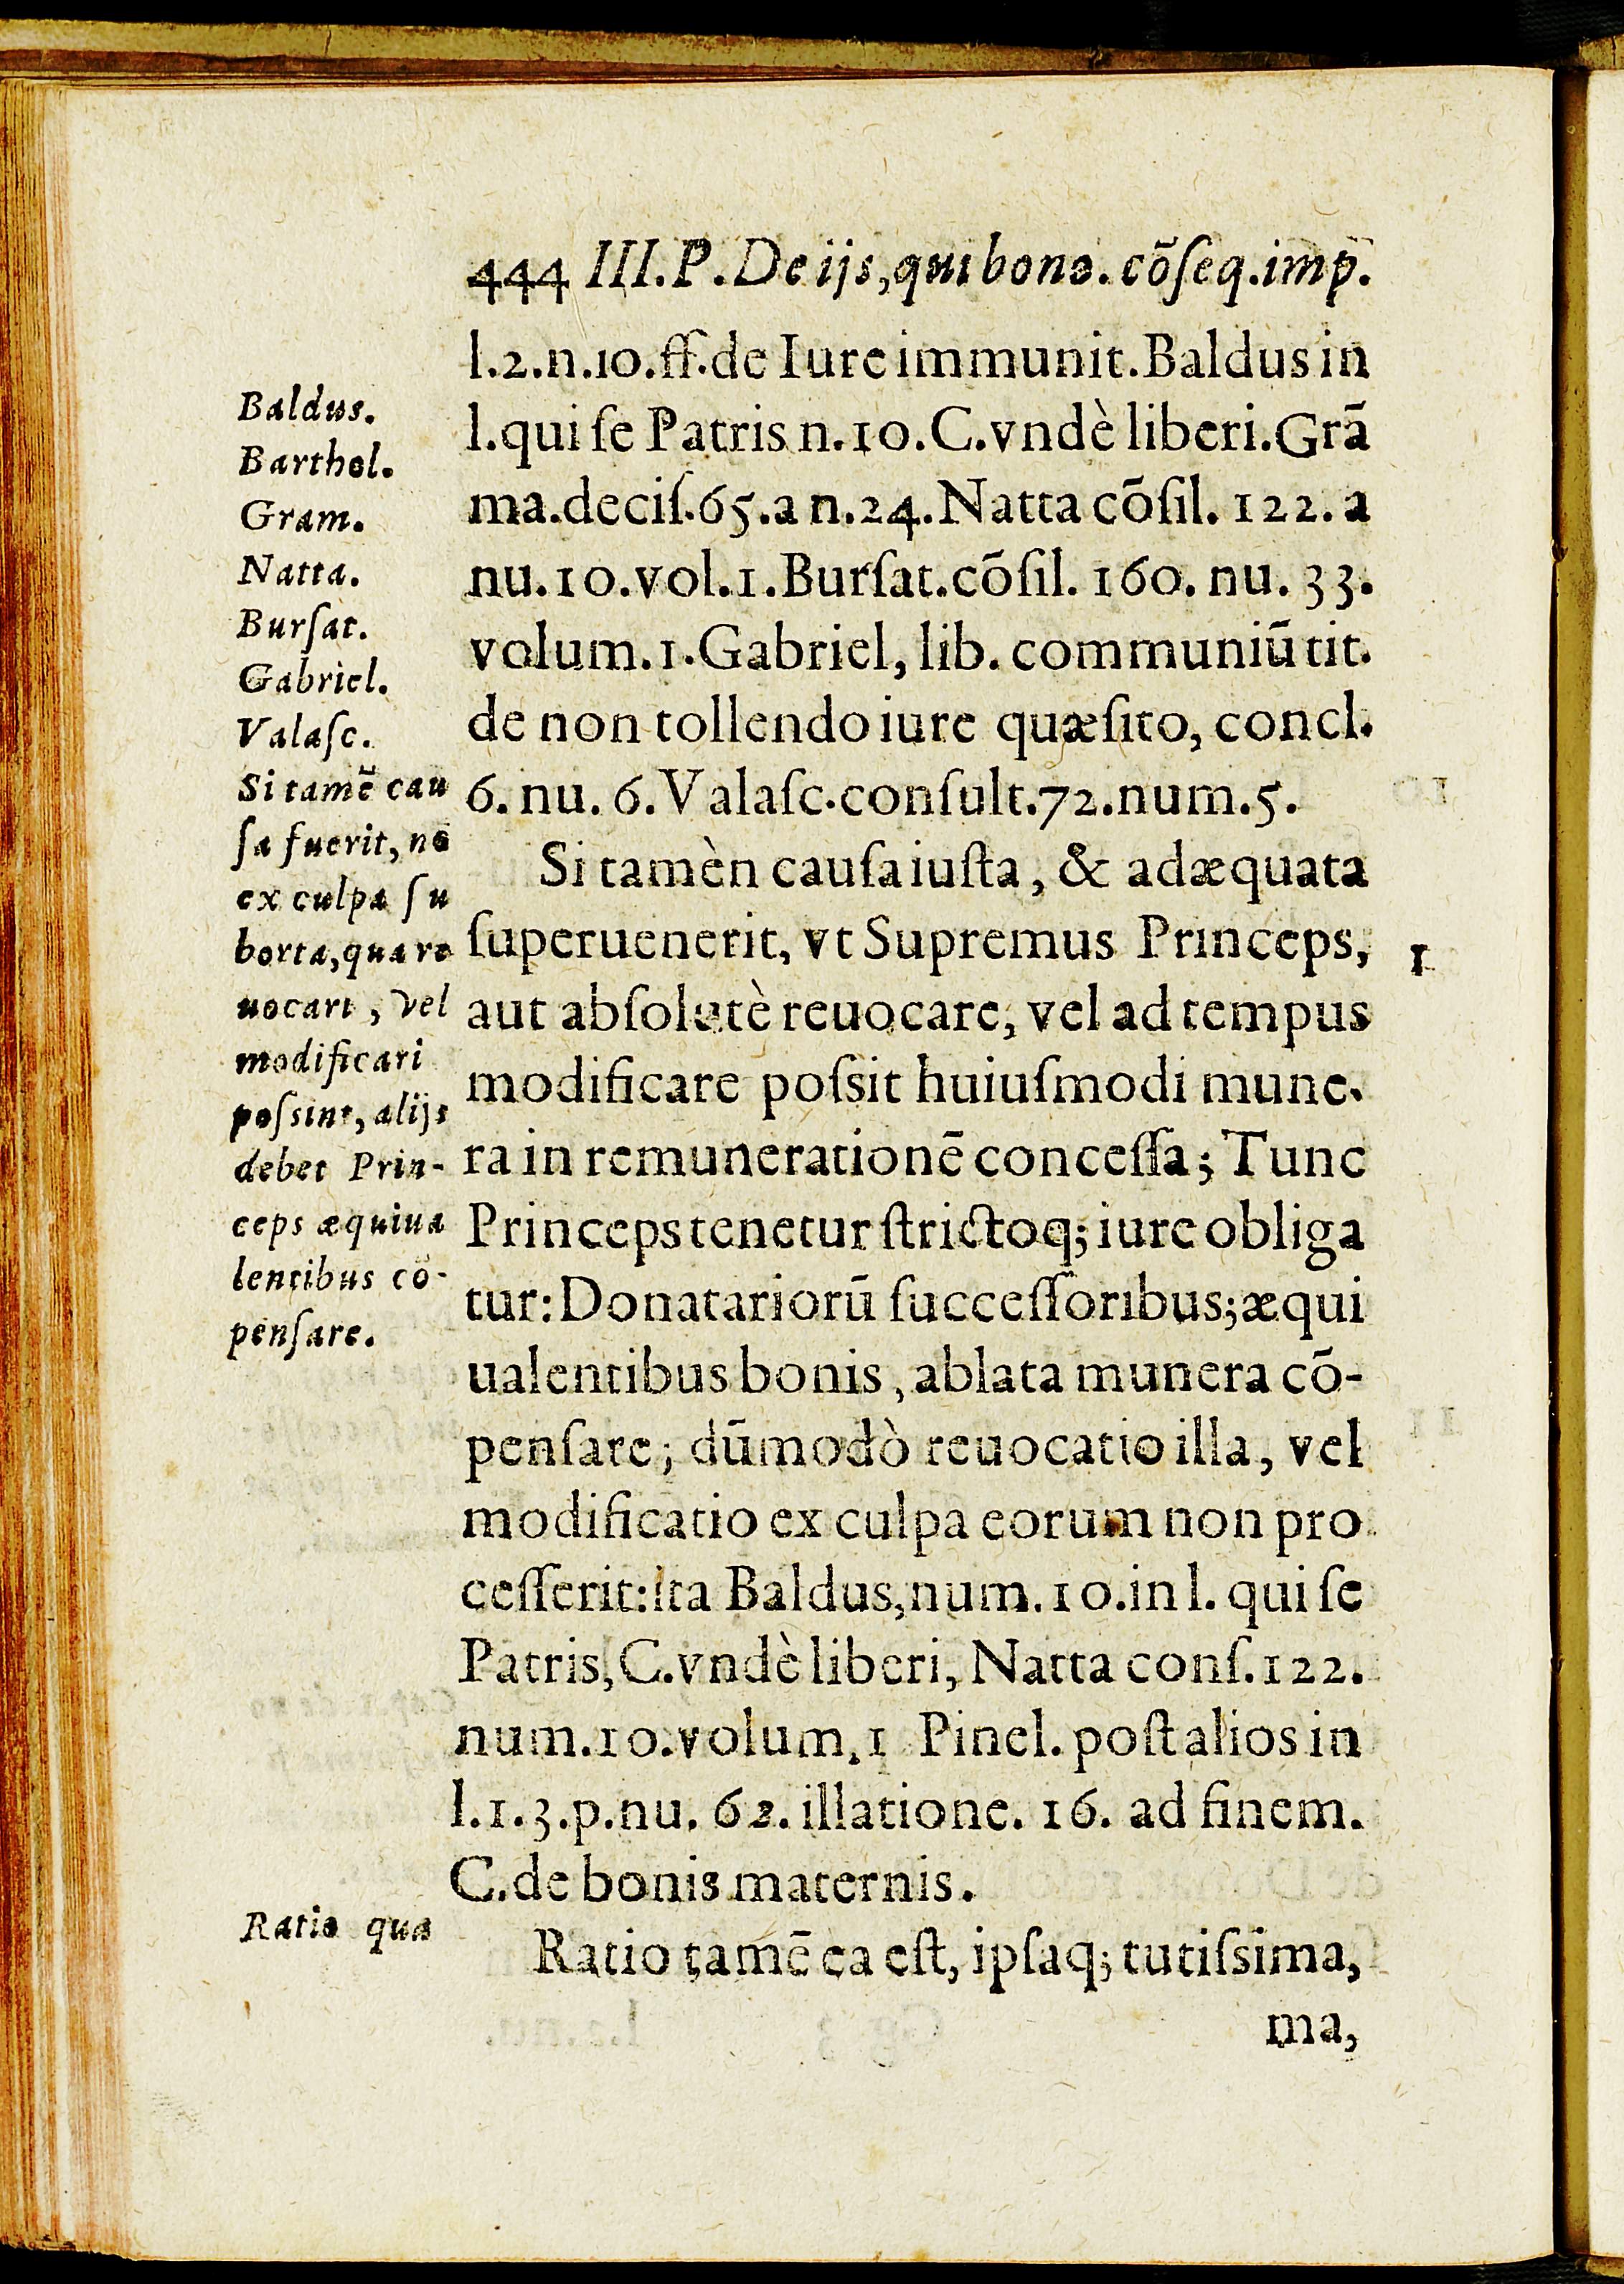 444 III.P.De ijs, qui bono.cõſeq.imp.
l.2.n.10.ff.de Iure immunit.Baldus in
l.qui ſe Patris n.10.C.vndè liberi.Grã
ma.deciſ.65.a n.24.Natta cõſil. 122. a
nu.10.vol.1.Burſat.cõſil. 160. nu. 33.
volum.1.Gabriel, lib. communiũ tit.
de non tollendo iure quæſito, concl.
6. nu. 6. Valaſc.conſult.72.num.5.
Si tamèn cauſa iuſta, & adæquata
ſuperuenerit, vt Supremus Princeps,
aut abſolutè reuocare, vel ad tempus
modificare poſsit huiuſmodi mune.
ra in remunerationē conceſſa; Tunc
Princeps tenetur ſtrictoq; iure obliga
tur: Donatariorũ ſucceſſoribus; æqui
ualentibus bonis, ablata munera cõ-
penſare; dũmodò reuocatio illa, vel
modificatio ex culpa eorum non pro
ceſſerit: ita Baldus, num. 10.in l. qui ſe
Patris, C.vndè liberi, Natta conſ.122.
num.10.volum.1 Pinel. poſt alios in
l.1.3.p.nu. 62. illatione. 16. ad finem.
C.de bonis maternis.
Ratio tamē ea eſt, ipſaq; tutiſsima,
ma,
Baldus.
Barthol.
Gram.
Natta.
Burſat.
Gabriel.
Valaſc.
Si tamē cau
ſa fuerit, nõ
ex culpa ſu
borta, qua re
uocari, vel
modificari
poſsint, alijs
debet Prin-
ceps æquiua
lentibus cõ-
penſare.
Ratio qua
1